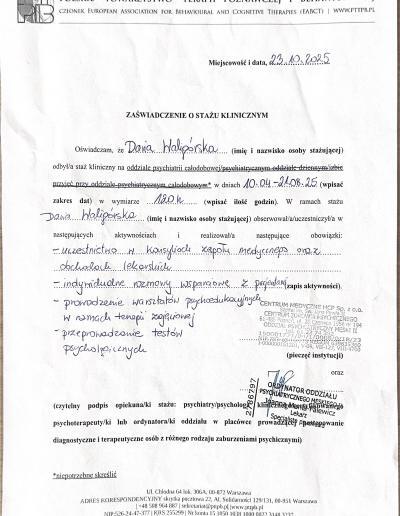 POLSKIE TOWARZYSTWO TERAPII POZNAWCZEJ I
CZŁONEK EUROPEAN ASSOCIATION FOR BEHAVIOURAL AND COGNITIVE THERAPIES (EABCT) | WWW.PTTPB.PL
Miejscowość i data, 23.10.2025
ZAŚWIADCZENIE O STAŻU KLINICZNYM
Oświadczam, że Daria Waligórska (imię i nazwisko osoby stażującej)
odbył/a staż kliniczny na oddziale psychiatrii całodobowej/psychiatrycznym oddziale dziennym/izbie
przyjęć przy oddziale psychiatrycznym całodobowym* w dniach 10.04-21.08.25 (wpisać
zakres dat) w wymiarze 120h (wpisać ilość godzin). W ramach stażu
Daria Waligórska (imię i nazwisko osoby stażującej) obserwował/a/uczestniczył/a w
następujących aktywnościach i realizował/a następujące obowiązki:
- uczestnictwo w konsyliach zespołu medycznego oraz
obchodach lekarskich
- indywidualne rozmowy wspierające z pacjentami zapis aktywności)
- prowadzenie warsztatów psychoedukacyjnych
w ramach terapii zajęciowej
- przeprowadzanie testów
psychologicznych
CENTRUM MEDYCZNE HCP Sp. z o.o.
CENTRUM ZDROWIA PSYCHICZNEGO
ODDZIAŁ PSYCHIATRYCZNY MĘSKI II
(pieczęć instytucji)
oraz
ORDYNATOR ODDZIAŁU
PSYCHIATRYCZNEGO MĘSKIEGO II
Lekarz
2706797
(czytelny podpis opiekuna/ki stażu: psychiatry/psychologa
psychoterapeuty/ki lub ordynatora/ki oddziału w placówce prowadzącej postępowanie
diagnostyczne i terapeutyczne osób z różnego rodzaju zaburzeniami psychicznymi)
*niepotrzebne skreślić
Ul. Chłodna 64 lok. 306A, 00-872 Warszawa
ADRES KORESPONDENCYJNY skrytka pocztowa 22, Al. Solidarności 129/131, 00-951 Warszawa
| +48 508 964 887 | sekretariat@pttpb.pl |www.pttpb.pl